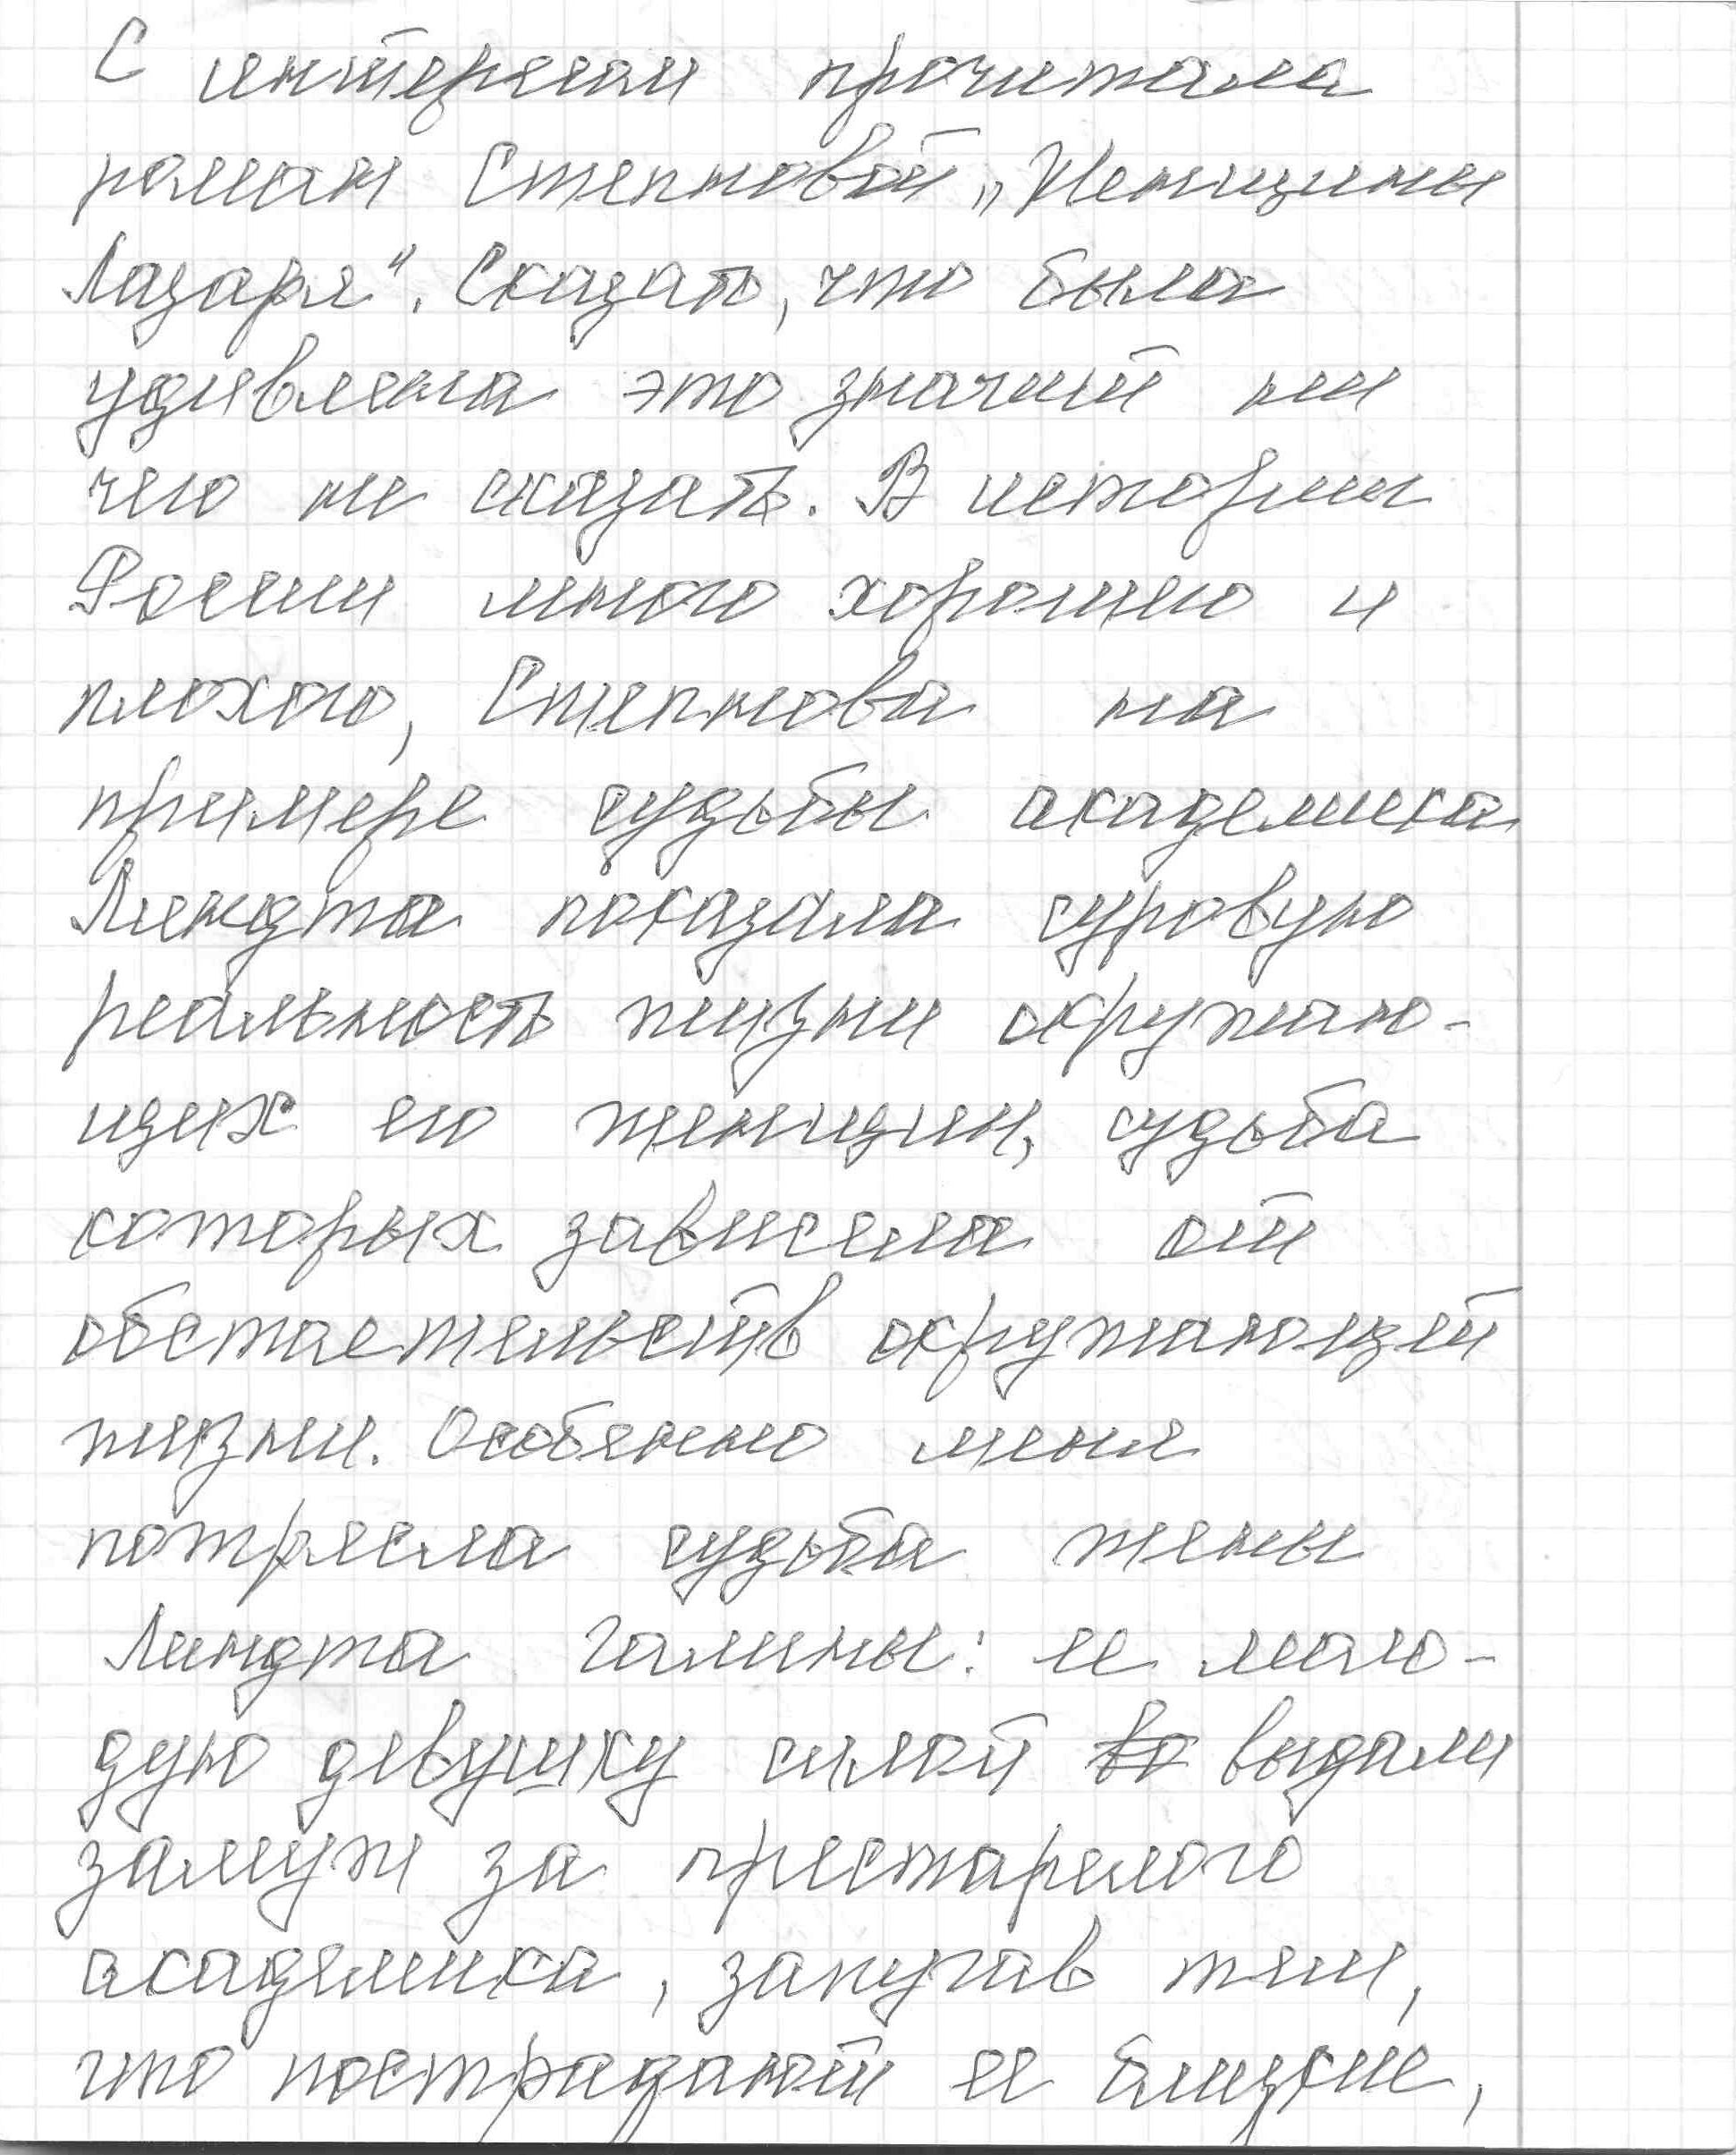 С интересом прочитала
роман Степновой „Женщины
Лазаря". Сказать, что была
удивлена это значит ни
чего не сказать. В истории
России много хорошего и
плохого, Степнова на
примере судьбы академика
Линдта показала суровую
реальность жизни окружаю-
щих его женщин, судьба
которых зависела от
обстоятельств окружающей
жизни. Особенно меня
потрясла судьба жены
Линдта Галины: ее моло-
дую девушку силой выдали
замуж за престарелого
академика, запугав тем,
что пострадают ее близкие,